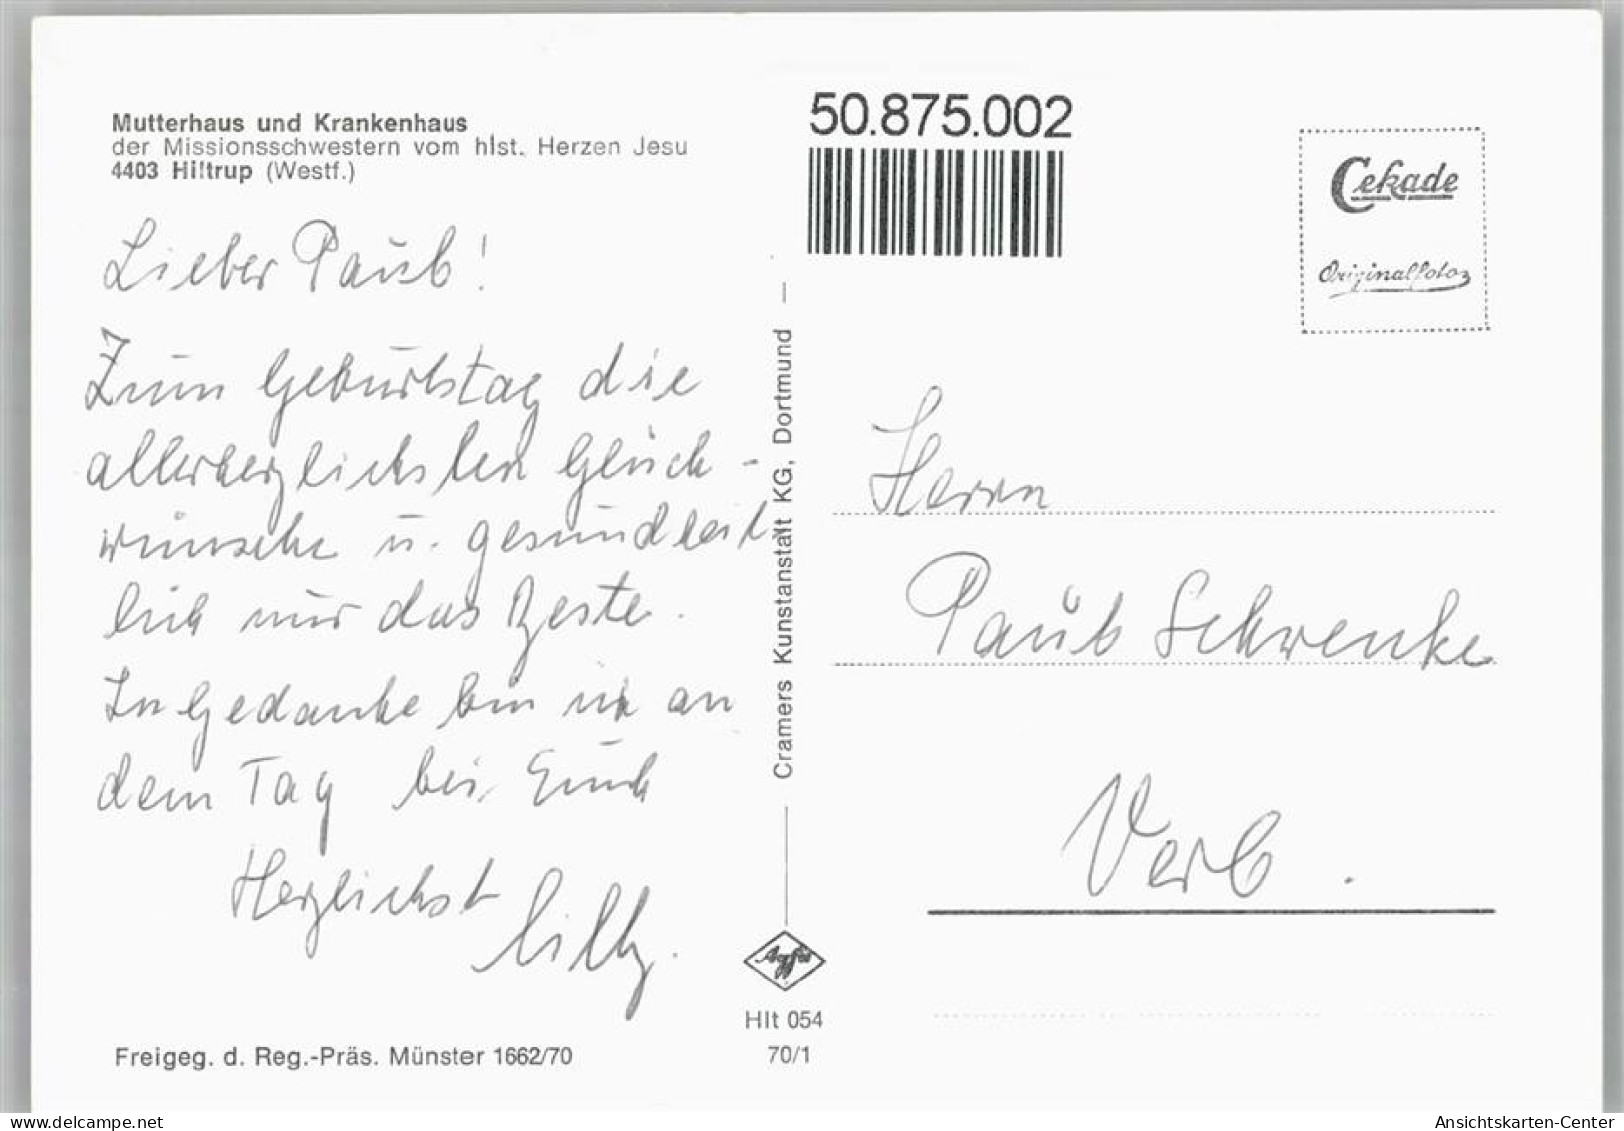 Mutterhaus und Krankenhaus
der Missionsschwestern vom hlst. Herzen Jesu
4403 Hiltrup (Westf.)
Lieber Paul!
Zum Geburtstag die
allerherzlichsten Glück-
wünsche u. gesundheit
lich nur das Beste.
In Gedanke bin ich an
dem Tag bei Euch
Herzlichst
Cilly.
Freigeg. d. Reg.-Präs. Münster 1662/70
Cramers Kunstanstalt KG, Dortmund
Agfa
Hlt 054
70/1
50.875.002
Cekade
Originalfoto
Herrn
Paul Schwenke
Verl.
delcampe.net
Ansichtskarten-Center